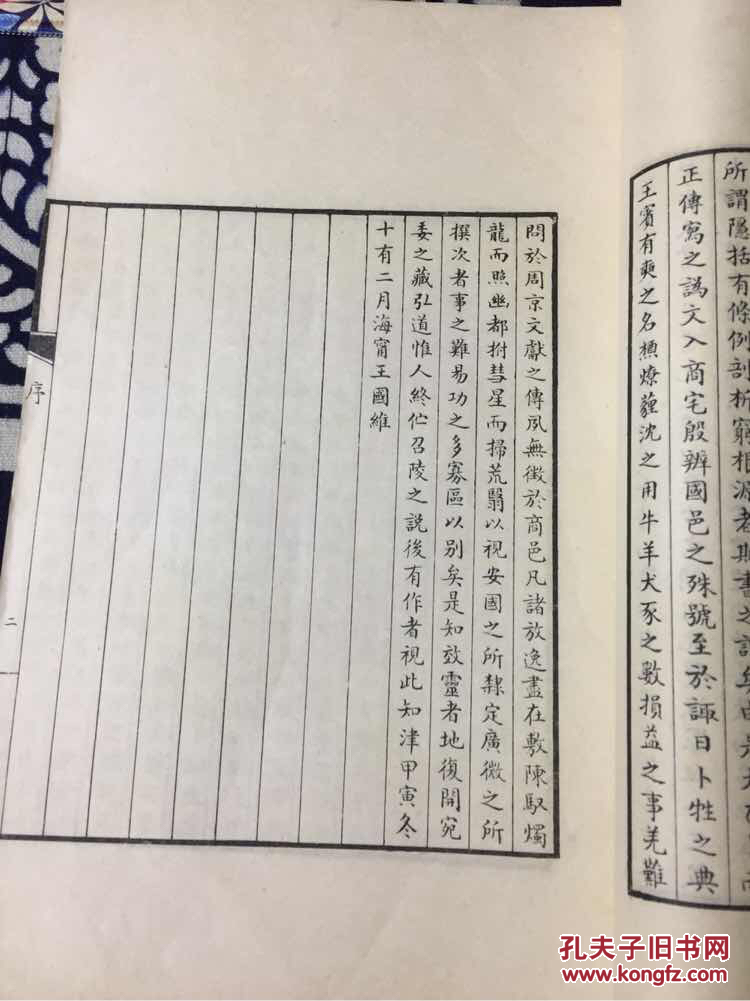 所謂隱括有條例剖析窮根源者斯書之
正傳寫之譌文入商宅殷辨國邑之殊號至於諏日卜牲之典
王賓有奭之名槱燎薶沈之用牛羊犬豕之數損益之事羌難
問於周京文獻之傳夙無徵於商邑凡諸放逸盡在敷陳馭燭
龍而照幽都拊彗星而掃荒翳以視安國之所隸定廣微之所
撰次者事之難易功之多寡區以別矣是知效靈者地復開宛
委之藏弘道惟人終伫召陵之說後有作者視此知津甲寅冬
十有二月海甯王國維
序
二
孔夫子旧书网
www.kongfz.com